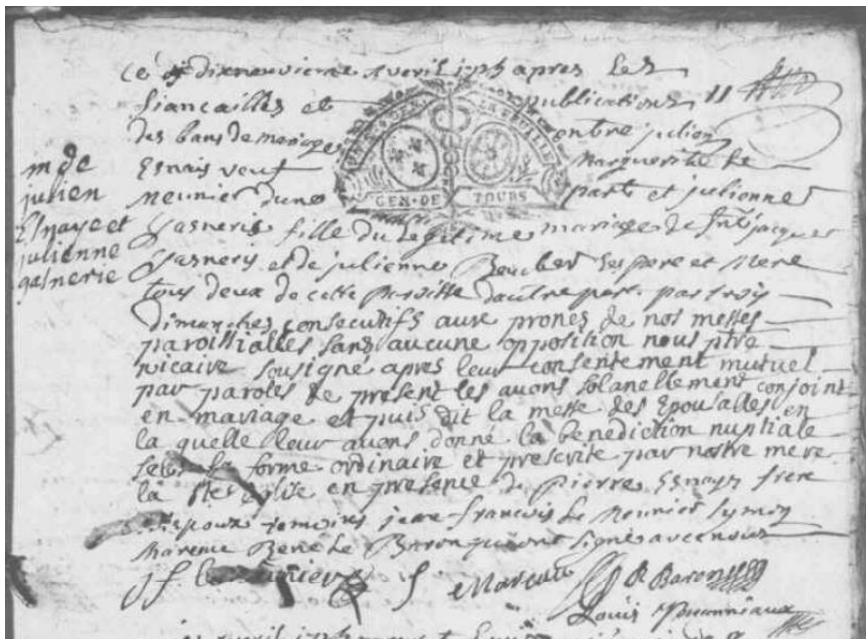 ce dixneuvieme avril apres les
fiancailles et publications
des bans de mariage entre julien
Esnais veuf Marguerite le
Meunier dune part et julienne
GEN·DE TOURS
m de
julien
Esnaye et
julienne
gasnerie
Gasneris fille du legitime mariage de jacques
Gasneris et de julienne ses pere et mere
tous deux de cette paroisse dautre part par trois
dimanches consecutifs aux prones de nos messes
paroissialles sans aucune opposition nous ptre
vicaire sousigné apres leur consentement mutuel
par paroles de present les avons solanellement conjoint
en mariage et puis dit la messe des Epousalles en
la quelle leur avons donné la benediction nuptiale
selon la forme ordinaire et prescrite par nostre mere
la Ste Eglise en presence de pierre Esnays frere
Espoux temoins jean francois le Meunier symon
Marceau René le Baron qui ont signé avec nous
jf le meunier S Marceau R Baron
Louis